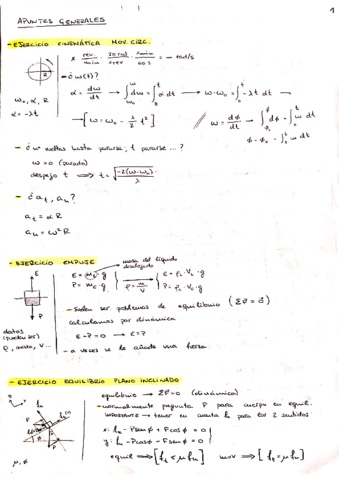 1
APUNTES GENERALES
- EJERCICIO CINEMÁTICA MOV. CIRC.
x rev./min · 2π rad/1 rev · 1 min/60 s = — rad/s
- ¿ω(t)?
α = dω/dt → ∫dω = ∫α dt → ω-ω₀ = ∫-λt dt →
ω₀, α, R
α = -λt
→ [ω = ω₀ - λ/2 t²]
// ω = dφ/dt → ∫dφ = ∫ω dt
φ - φ₀ = ∫ω dt
vueltas hasta pararse, t pararse ...?
ω = 0 (parado)
despejo t ⟹ t = √(-2(ω-ω₀)/λ)
- ¿ at, an?
at = α R
an = ω² R
- EJERCICIO EMPUJE
masa del líquido desalojado
E
E = m · g
P = m · g
ρ = m/V
E = ρ · V · g
P = ρ · V · g
P
- Suelen ser problemas de equilibrio (ΣF = 0)
calculamos por dinámica
datos
(pueden ser)
ρ, V...
E - P = 0 → E = P
- a veces se le añade una fuerza
- EJERCICIO EQUILIBRIO PLANO INCLINADO
equilibrio → ΣF = 0 (dinámica)
- normalmente pregunta F para cuerpo en equil.
IMPORTANTE → tener en cuenta para los 2 sentidos
x: - P sen φ + F cos φ = 0
y: - P cos φ - F sen φ = 0
μ, φ
equil → [ < μ ] mov → [ = μ ]